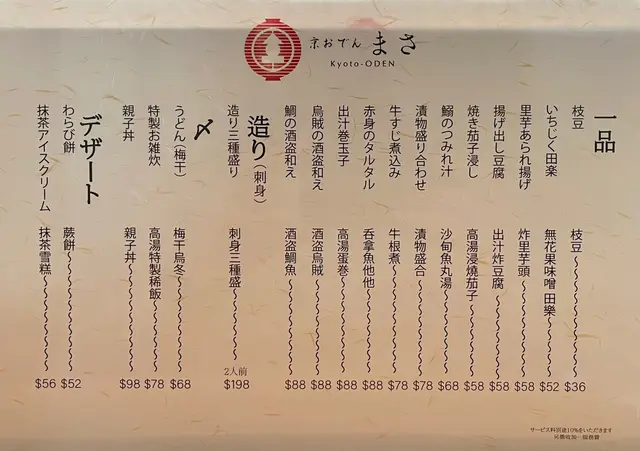 京おでん まさ
Kyoto-ODEN
一品
枝豆 枝豆 $36
いちじく田楽 無花果味噌田樂 $52
里芋あられ揚げ 炸里芋頭 $58
揚げ出し豆腐 出汁炸豆腐 $58
焼き茄子浸し 高湯浸燒茄子 $58
鰯のつみれ汁 沙甸魚丸湯 $68
漬物盛り合わせ 漬物盛合 $78
牛すじ煮込み 牛根煮 $78
赤身のタルタル 吞拿魚他他 $88
出汁巻玉子 高湯蛋巻 $88
烏賊の酒盗和え 酒盗烏賊 $88
鯛の酒盗和え 酒盗鯛魚 $88
造り(刺身)
造り三種盛り 刺身三種盛 2人前 $198
〆
うどん(梅干) 梅干烏冬 $68
特製お雑炊 高湯特製稀飯 $78
親子丼 親子丼 $98
デザート
わらび餅 蕨餅 $52
抹茶アイスクリーム 抹茶雪糕 $56
サービス料別途10%をいただきます
另需收加一服務費